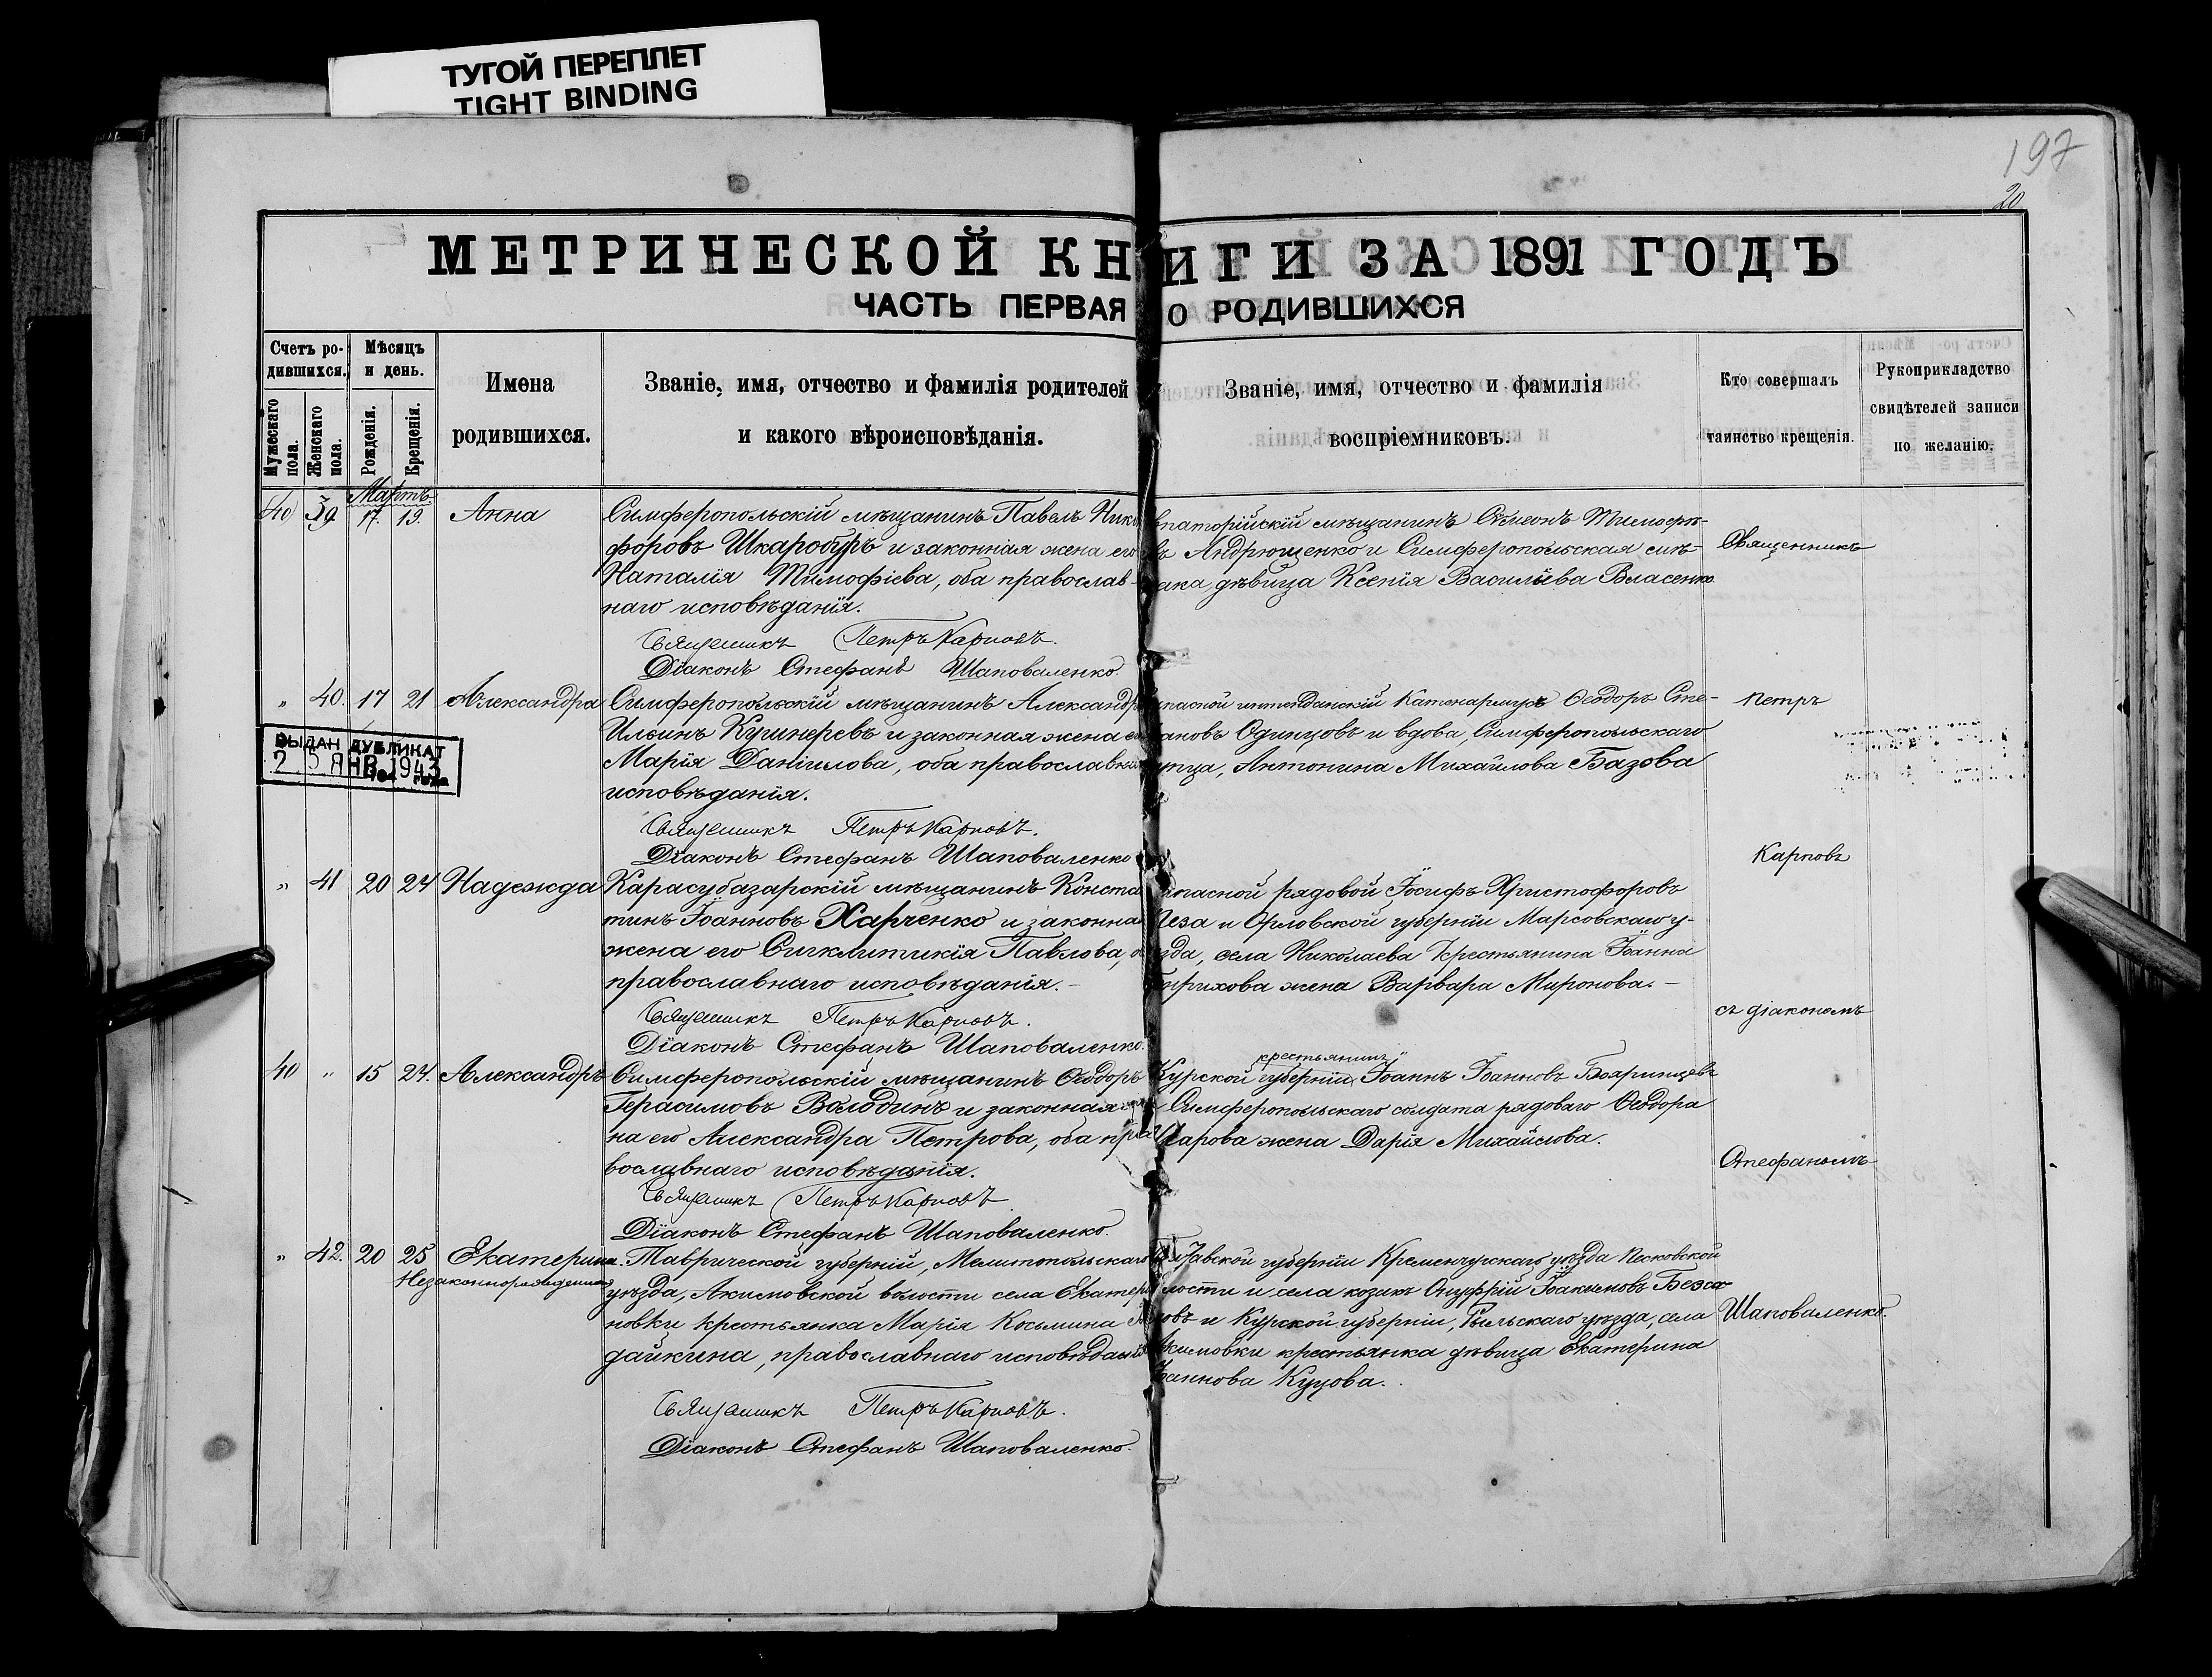 ТУГОЙ ПЕРЕПЛЕТ
TIGHT BINDING
197
20
МЕТРИЧЕСКОЙ КНИГИ ЗА 1891 ГОДЪ
ЧАСТЬ ПЕРВАЯ О РОДИВШИХСЯ
Счетъ ро-
дившихся.
Мужескаго пола.
Женскаго пола.
Мѣсяцъ
и день.
Рожденія.
Крещенія.
Имена
родившихся.
Званіе, имя, отчество и фамилія родителей
и какого вѣроисповѣданія.
Званіе, имя, отчество и фамилія
воспріемниковъ.
Кто совершалъ
таинство крещенія.
Рукоприкладство
свидѣтелей записи
по желанію.
Мартъ
39 17. 19. Анна
Симферопольскій мѣщанинъ Павелъ Ники
форовъ Шкаробуръ и законная жена его
Наталія Тимофіева, оба православ-
наго исповѣданія.
Священникъ Петръ Карповъ.
Діаконъ Стефанъ Шаповаленко.
впаторійскій мѣщанинъ Сѵмеонъ Тимофѣ-
въ Андрющенко и Симферопольская
дѣвица Ксенія Василіева Власенко
" 40. 17 21 Александра
Симферопольскій мѣщанинъ Александръ
Ильинъ Кушнеревъ и законная жена
Марія Даніилова, оба православнаго
исповѣданія.
Священникъ Петръ Карповъ.
Діаконъ Стефанъ Шаповаленко
пасной Ѳеодоръ Сте-
фановъ Одинцовъ и вдова, Симферопольскаго
упца, Антонина Михайлова Базова
ВЫДАН ДУБЛИКАТ
25 ЯНВ 1943
" 41 20 24 Надежда
Карасубазарскій мѣщанинъ Конста
тинъ Іоанновъ Харченко и законная
жена его Сигклитикія Павлова,
православнаго исповѣданія.-
Священникъ Петръ Карповъ.
Діаконъ Стефанъ Шаповаленко.
пасной рядовой Іосифъ Христофоровъ
и Орловской губерніи у-
зда, села Николаева крестьянина Іоанна
жена Варвара Миронова.-
40 " 15 24. Александръ
Симферопольскій мѣщанинъ Ѳеодоръ
Герасимовъ Володинъ и законная
на его Александра Петрова, оба пра
вославнаго исповѣданія.
Священникъ Петръ Карповъ
Діаконъ Стефанъ Шаповаленко.
крестьянинъ
Курской губерніи Іоаннъ Іоанновъ Бояринцевъ
Симферопольскаго солдата рядоваго Ѳеодора
жена Дарія Михайлова.
" 42. 20 25 Екатерина
Незаконнорожденная
Таврической губерній, Мелитопольскаго
уѣзда, Акимовской волости села Екатери
новки крестьянка Марія Косьмина
дайкина, православнаго исповѣданія
Священникъ Петръ Карповъ.
Діаконъ Стефанъ Шаповаленко.
Полтавской губерніи Кременчугскаго уѣзда Песковской
лости и села козакъ Онуфрій Іоакимовъ
и Курской губерніи, Рыльскаго уѣзда, села
Акимовки крестьянка дѣвица Екатерина
Іоаннова Куцова.
Священникъ
Петръ
Карповъ
съ діакономъ
Стефаномъ
Шаповаленко.